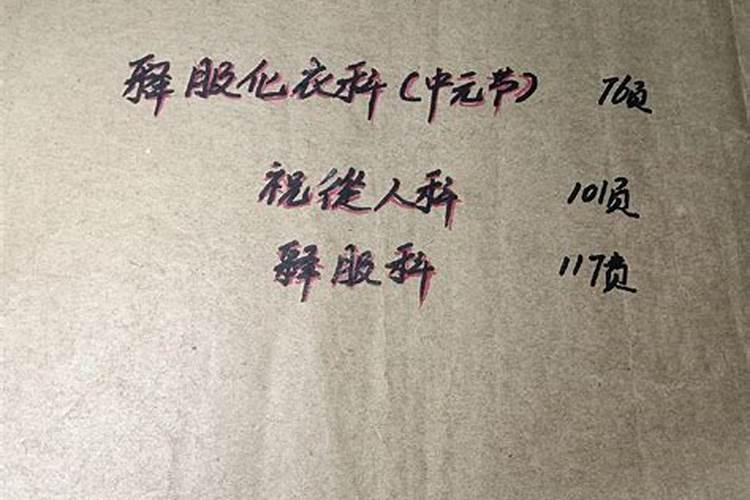 释服化衣科(中元节) 76页
祝從人科 101页
释服科 117页